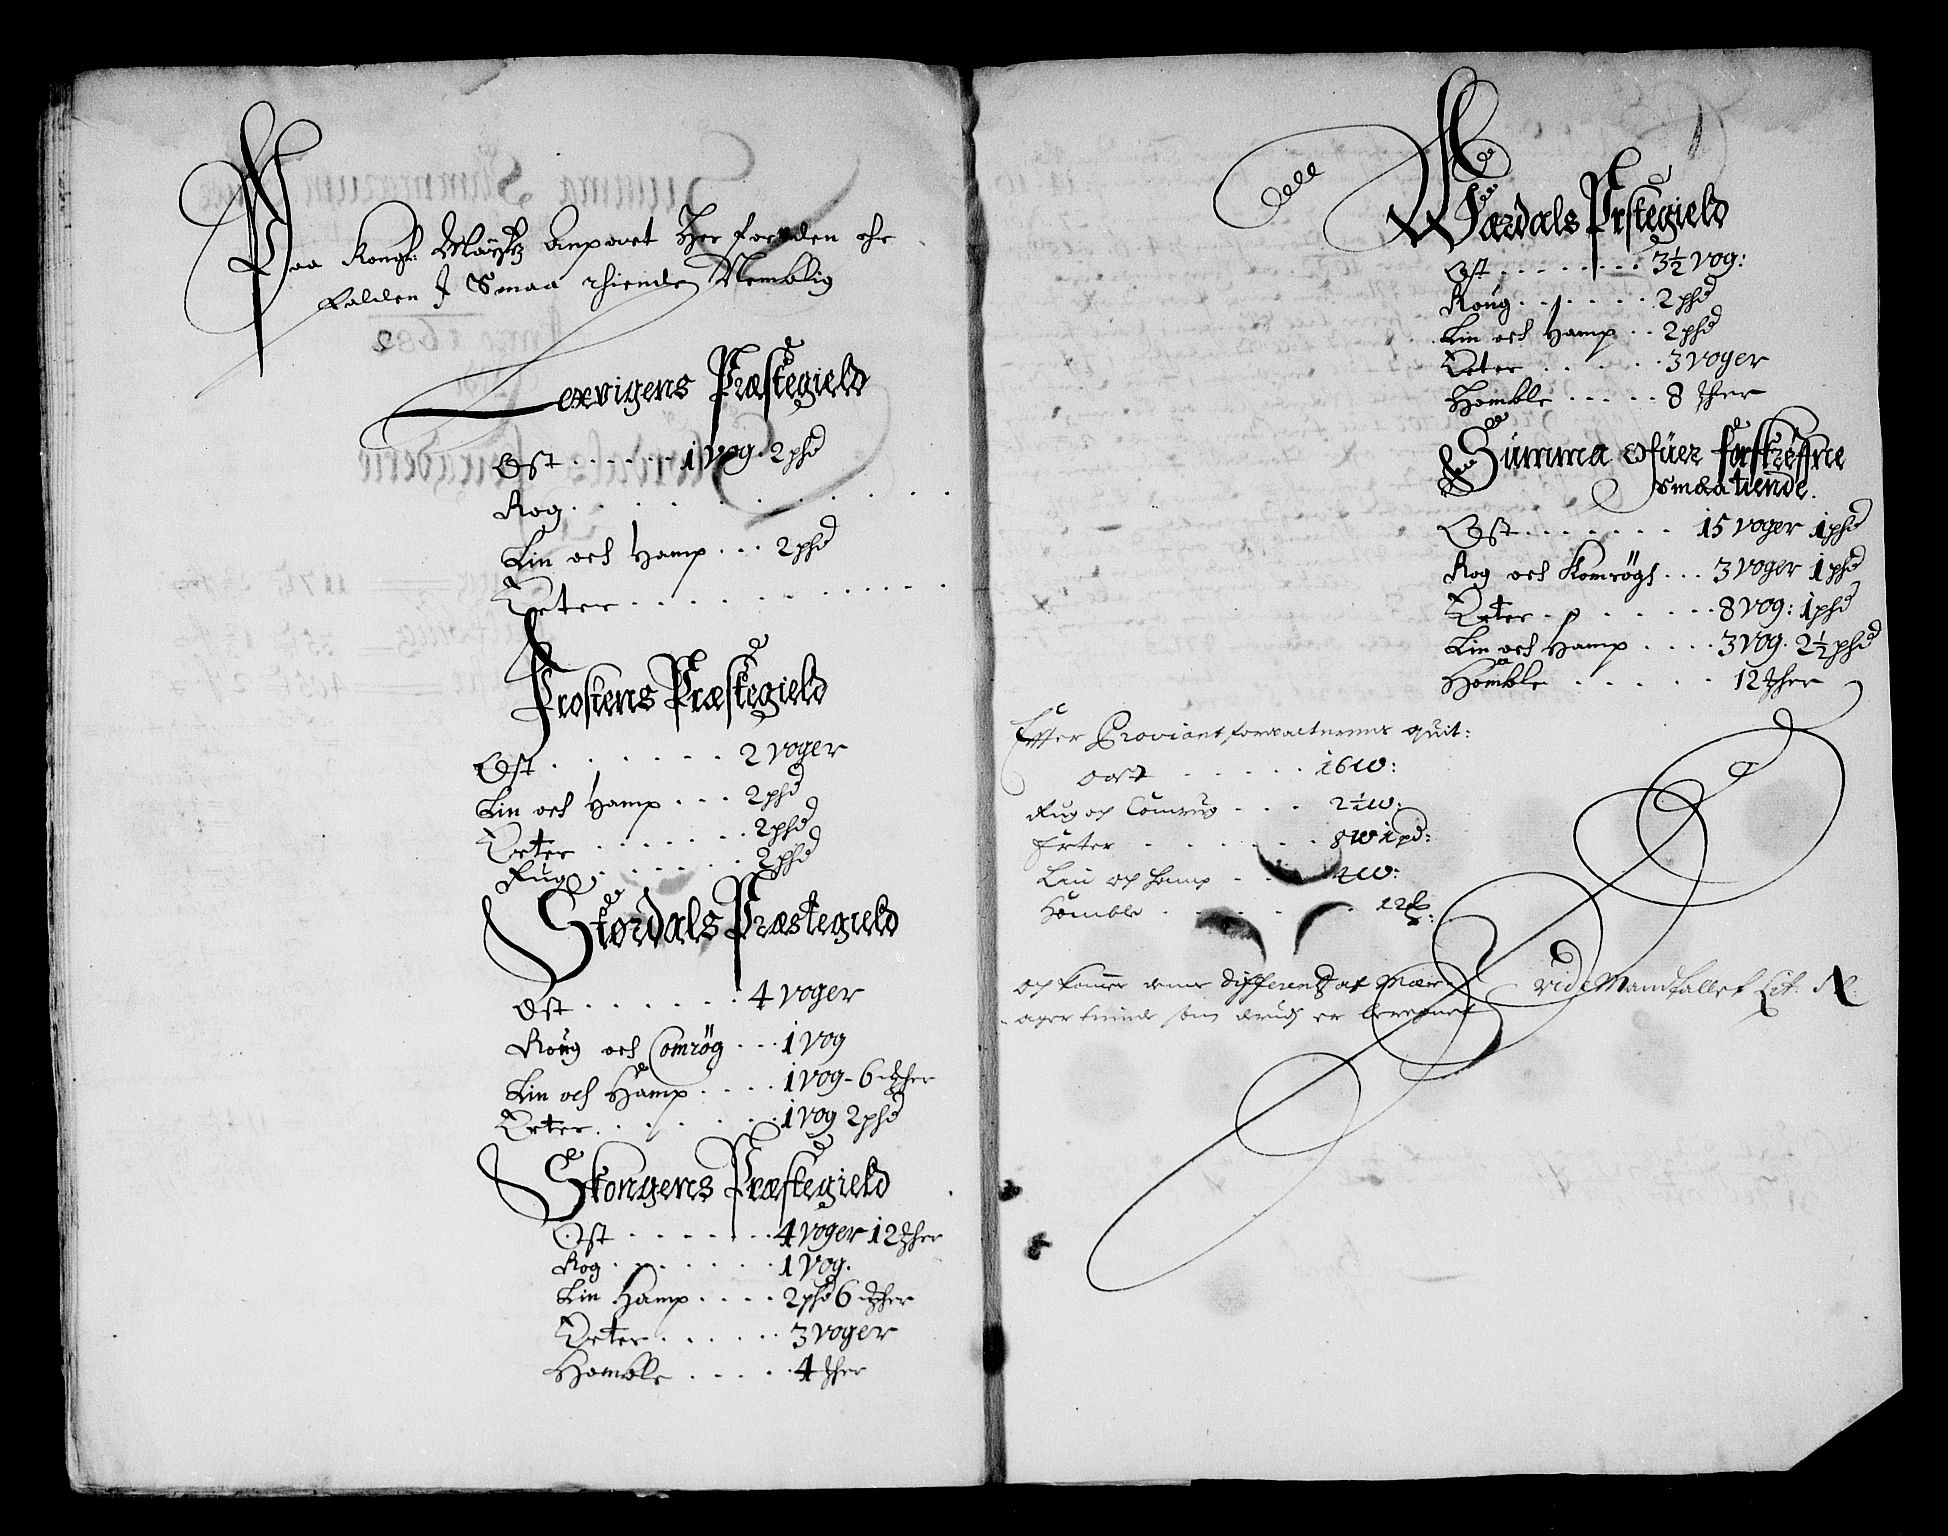 Paa Kongl: Maÿstz anpart Her for uden ehr
falden I Smaa thiende Nemblig
Lexvigens Præstegield
Ost . . . . . . 1 vog. 2 phd
Rog . . . . . . . . .
Lin och Hamp . . . 2 phd
Erter . . . . . . . . .
Frostens Præstegield
Ost . . . . . . . 2 voger
Lin och Hamp . . . 2 phd
Erter . . . . . . . 2 phd
Rug . . . . . . . 2 phd
Størdals Præstegield
Ost . . . . . . . 4 voger
Roug och Comrøg . . . 1 vog
Lin och Hamp . . . . 1 vog - 6
Erter . . . . . . . 1 vog 2 phd
Skongens Præstegield
Ost . . . . . . . 4 voger 12
Rog . . . . . . . 1 vog.
Lin Hamp . . . . 2 phd 6
Erter . . . . . . 3 voger
Homble . . . . . 4
Værdals Prstegield
Ost . . . . . . . . 3½ vog:
Roug . . . . . . . 2 phd
Lin och Hamp . . 2 phd
Erter . . . . . . 3 voger
Homble . . . . . 8
Summa ofuer forskrefne
smaa tiende.
Ost . . . . . . . 15 voger 1 phd
Rog och Komrøgh . . . 3 voger 1 phd
Erter . . . . . . 8 vog: 1 phd
Lin och Hamp . . . . 3 vog. 2½ phd
Homble . . . . . 12
Effter Proviantforvalterens quit:
Oost . . . . . . 16 w:
Rug och Comrug . . . 2½ w:
Erter . . . . . . . 8 w 1 pd:
Lin och Hamp . . . 4 w:
Homble . . . . . . . 12 lb:
och kommer denne differentz af
tiende som er beregnet
vide Mandtallet Lit: N.